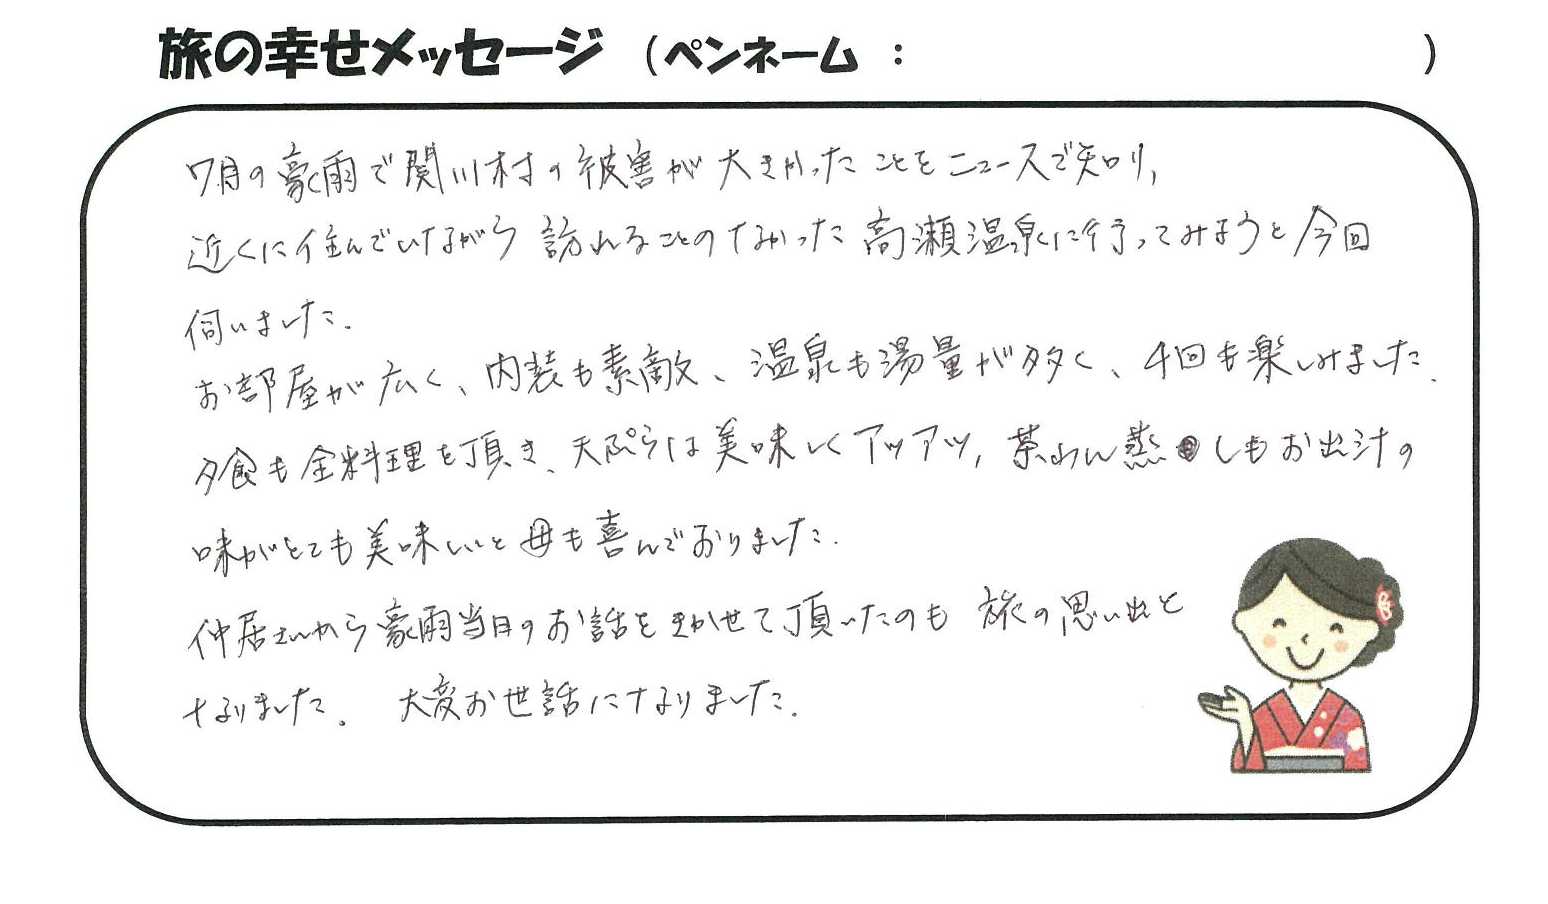 旅の幸せメッセージ (ペンネーム : )
7月の豪雨で関川村の被害が大きかったことをニュースで知り,
近くに住んでいながら訪れることのなかった高瀬温泉に行ってみようと今回
伺いました.
お部屋が広く、内装も素敵、温泉も湯量が多く、4回も楽しみました.
夕食も全料理を頂き、天ぷらは美味しくアツアツ,茶わん蒸しもお出汁の
味がとても美味しいと母も喜んでおりました.
仲居さんから豪雨当日のお話をきかせて頂いたのも 旅の思い出と
なりました. 大変お世話になりました.